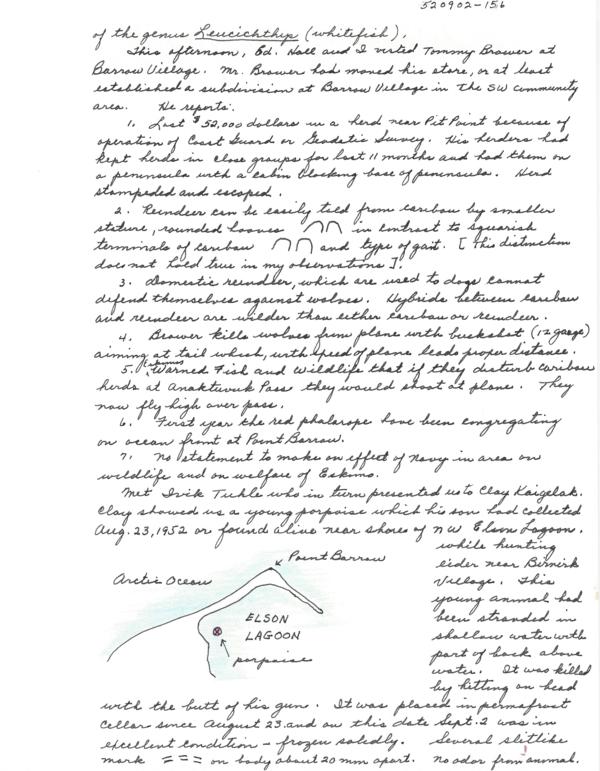 520902-156
of the genus Leucichthys (whitefish).
This afternoon, Ed. Hall and I visited Tommy Brower at
Barrow Village. Mr. Brower had moved his store, or at least
established a subdivision at Barrow Village in the SW community
area. He reports:
1. Lost $52,000 dollars in a herd near Pit Point because of
operation of Coast Guard or Geodetic Survey. His herders had
kept herds in close groups for last 11 months and had them on
a peninsula with a cabin blocking base of peninsula. Herd
stampeded and escaped.
2. Reindeer can be easily told from caribou by smaller
stature, rounded hooves in contrast to squarish
terminals of caribou and type of gait. [This distinction
does not hold true in my observations].
3. Domestic reindeer, which are used to dogs cannot
defend themselves against wolves. Hybrids between caribou
and reindeer are wilder than either caribou or reindeer.
4. Brower kills wolves from plane with buckshot (12 gauge)
aiming at tail which, with speed of plane leads proper distance.
5. Eskimos Warned Fish and Wildlife that if they disturb caribou
herds at Anaktuvuk Pass they would shoot at plane. They
now fly high over pass.
6. First year the red phalarope have been congregating
on ocean front at Point Barrow.
7. No statement to make on effect of Navy in area on
wildlife and on welfare of Eskimo.
Met Ivik Tuckle who in turn presented us to Clay Kaigelak.
Clay showed us a young porpoise which his son had collected
Aug. 23, 1952 or found alive near shores of NW Elson Lagoon.
while hunting
eider near Birnirk
Village. This
young animal had
been stranded in
shallow water with
part of back above
water. It was killed
by hitting on head
Point Barrow
Arctic Ocean
ELSON
LAGOON
porpoise
with the butt of his gun. It was placed in permafrost
cellar since August 23 and on this date Sept. 2 was in
excellent condition - frozen solidly. Several slitlike
mark === on body about 20 mm apart. No odor from animal.